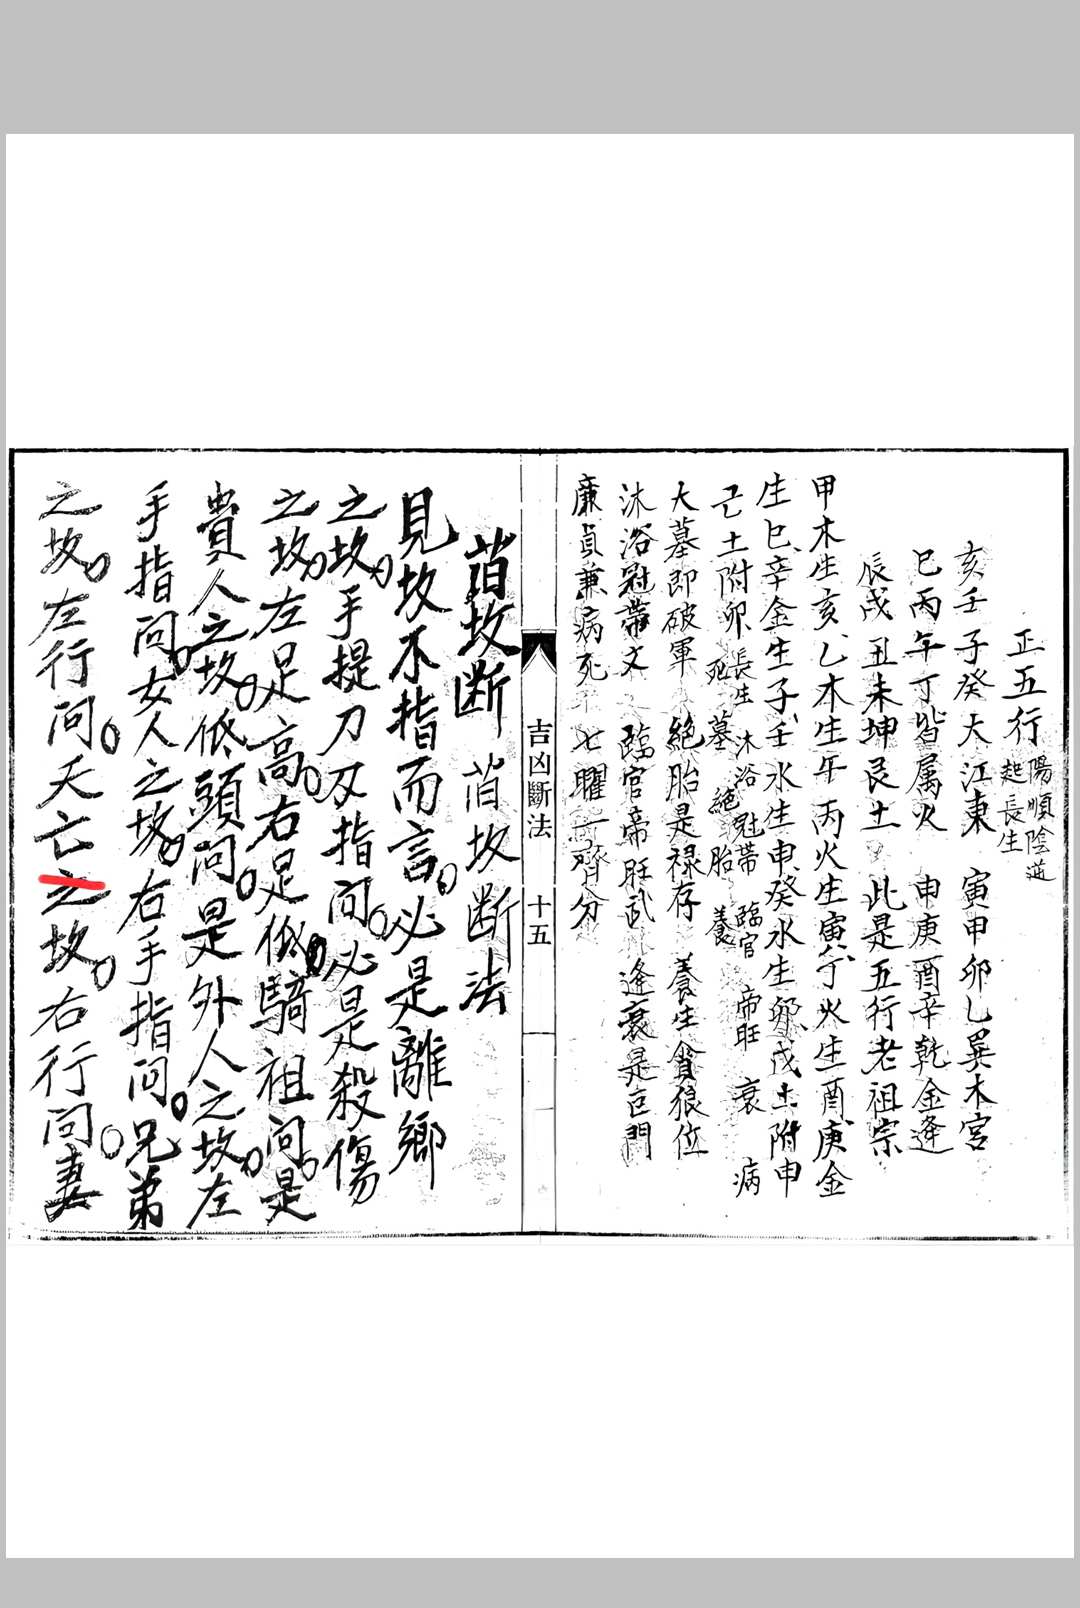 正五行 陽順陰逆 起長生
亥壬子癸大江東 寅甲卯乙巽木宮
巳丙午丁皆属火 申庚酉辛乾金逢
辰戌丑未坤艮土 此是五行老祖宗
甲木生亥乙木生午丙火生寅丁火生酉庚金
生巳辛金生子壬水生申癸水生卯戊土附申
己土附卯 長生 沐浴 冠帶 臨官 帝旺 衰 病
死 墓 絕 胎 養
大墓即破軍 絕胎是禄存 養生貪狼位
沐浴冠帶文 臨官帝旺武 逢衰是巨門
廉貞兼病死 七曜一齊分
吉凶斷法 十五
坟断 坟断法
見坟不指而言必是離鄉
之坟手提刀刃指问必是殺傷
之坟左足高右足低騎祖问是
貴人之坟低頭问是外人之坟左
手指问女人之坟右手指问兄弟
之坟左行问夭亡之坟右行问妻